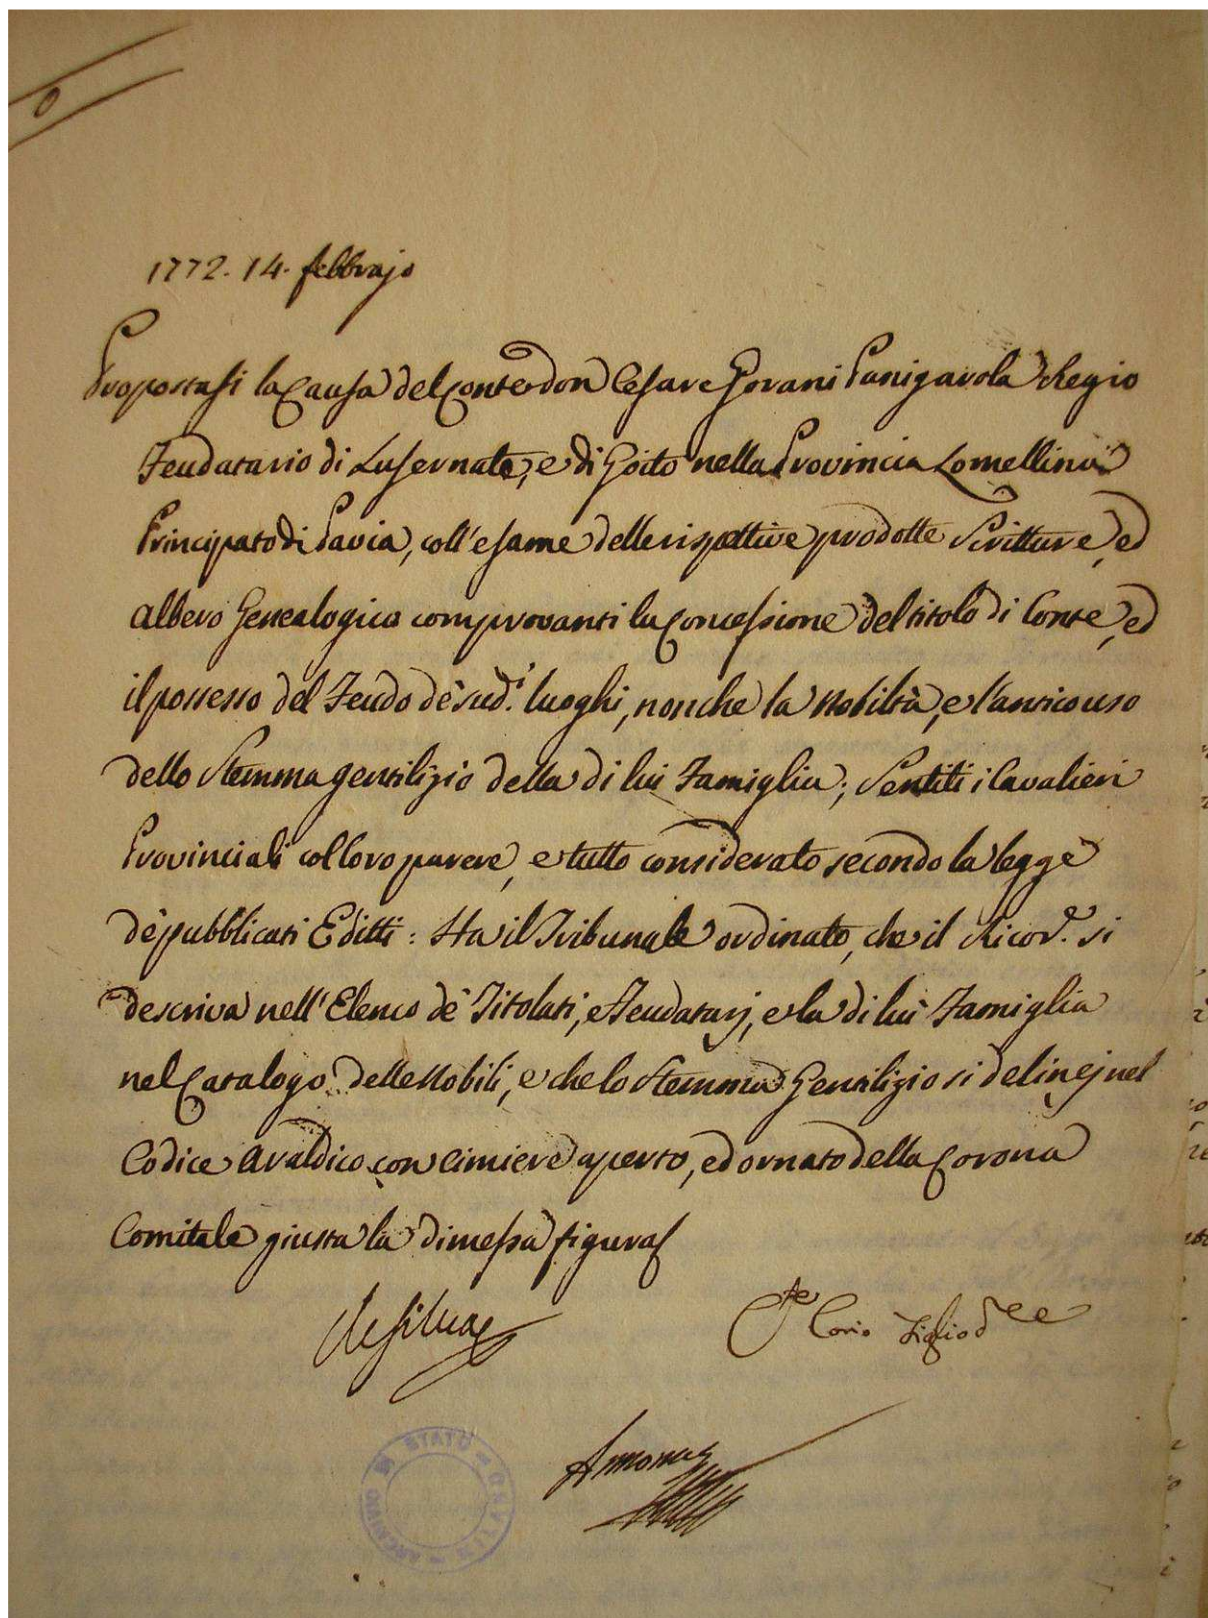 1772. 14. febbrajo
Propostasi la Causa del Conte don Cesare Gorani Panigarola Regio
Feudatario di Lusernate, e di Goito nella Provincia Lomellina
Principato di Pavia, coll'esame delle rispettive prodotte Scritture, ed
albero Genealogico comprovanti la Concessione del titolo di Conte, ed
il possesso del Feudo de' sud.i luoghi, nonche la Nobiltà, e l'antico uso
dello Stemma gentilizio della di lui Famiglia; Sentiti i Cavalieri
Provinciali col loro parere, e tutto considerato secondo la legge
de' pubblicati Editti: Ha il Tribunale ordinato, che il Ricor.e si
descriva nell'Elenco de' Titolati, e Feudatarj, e la di lui Famiglia
nel Catalogo delle Nobili, e che lo Stemma Gentilizio si delinej nel
Codice Araldico con cimiere aperto, ed ornato della Corona
Comitale giusta la dimessa figura
De Silva
C.te Corio
ARCHIVIO DI STATO MILANO